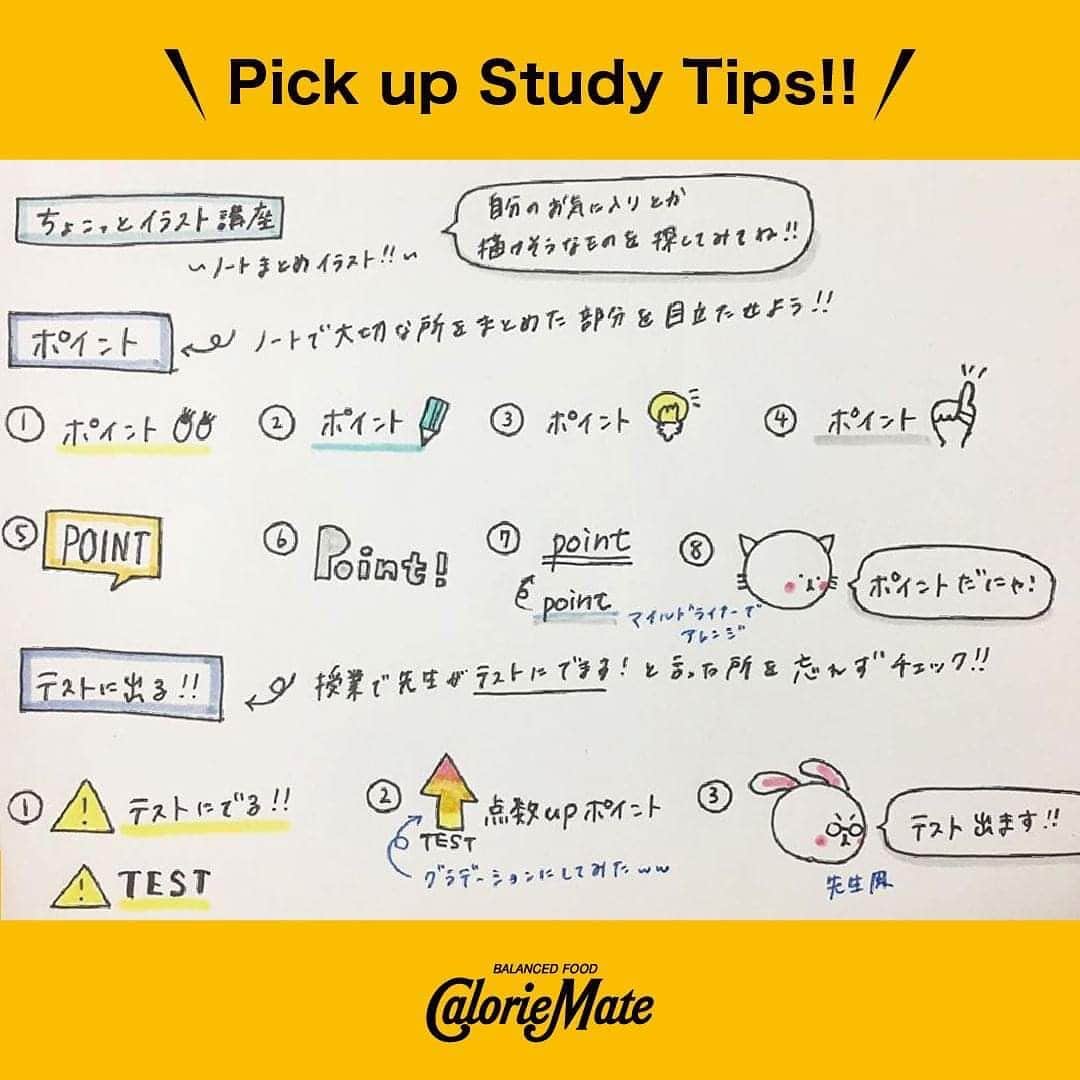 \ Pick up Study Tips!! /
ちょこっとイラスト講座
〜ノートまとめイラスト!!〜
自分のお気に入りとか
描けそうなものを探してみてね!!
ポイント
ノートで大切な所をまとめた部分を目立たせよう!!
① ポイント
② ポイント
③ ポイント
④ ポイント
⑤ POINT
⑥ Point!
⑦ point
point
マイルドライナーで
アレンジ
⑧ ポイントだにゃ!
テストに出る!!
授業で先生がテストにでる!と言った所を忘れずチェック!!
① テストにでる!!
TEST
② TEST 点数upポイント
グラデーションにしてみたww
③ テスト出ます!!
先生風
BALANCED FOOD
CalorieMate